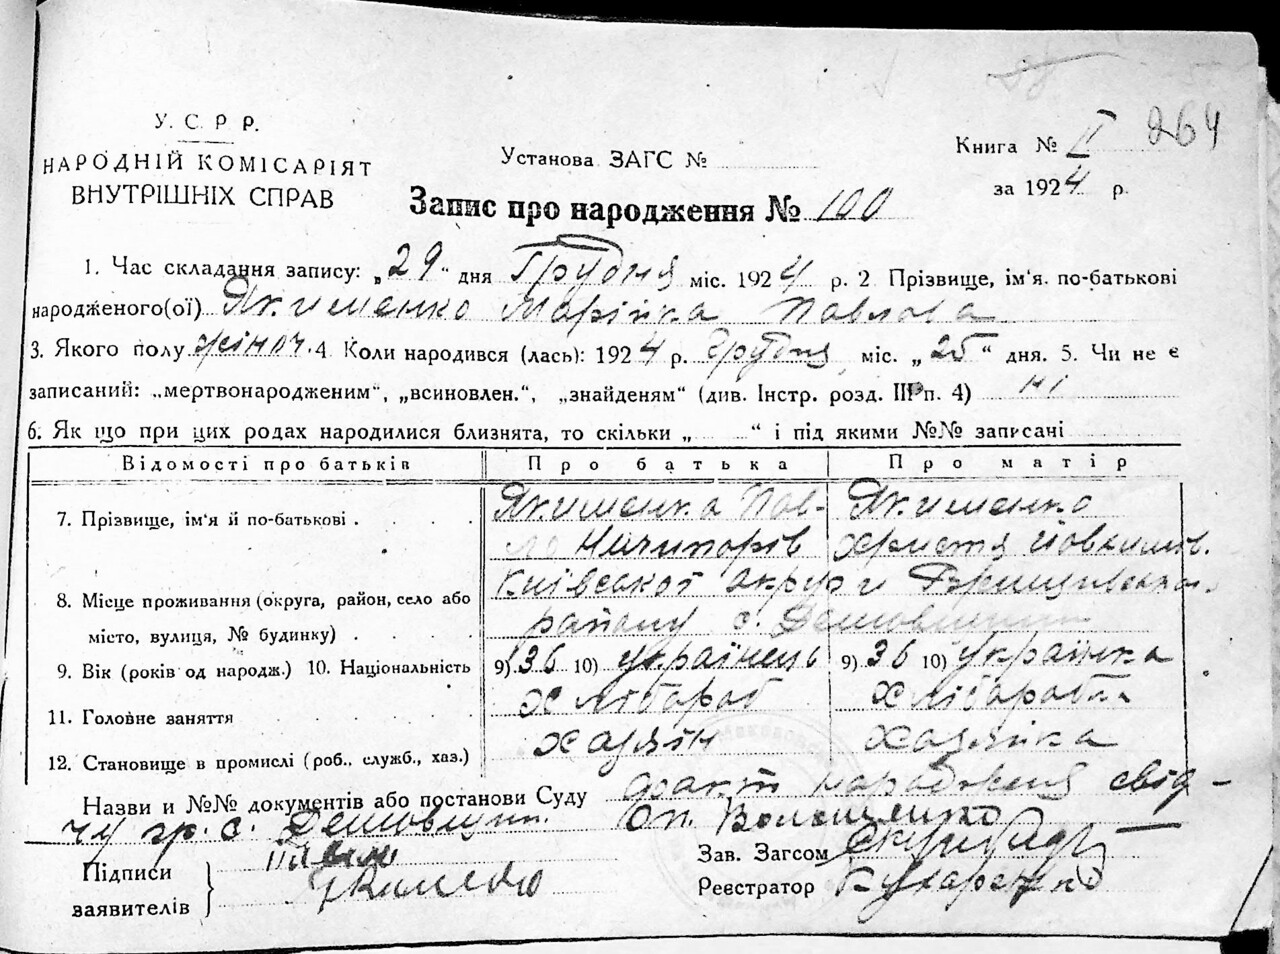 264
У. С. Р. Р.
НАРОДНІЙ КОМІСАРІЯТ
ВНУТРІШНІХ СПРАВ
Установа ЗАГС №
Книга № II
за 1924 р.
Запис про народження № 100
1. Час складання запису: „29“ дня Грудня міс. 1924 р. 2 Прізвище, ім'я. по-батькові
народженого(ої) Якименко Марійка Павлова
3. Якого полу жіноч. 4 Коли народився (лась): 1924 р. Грудня міс. „25“ дня. 5. Чи не є
записаний: „мертвонародженим“, „всиновлен.“, „знайденям“ (див. Інстр. розд. III п. 4) ні
6. Як що при цих родах народилися близнята, то скільки „ “ і під якими №№ записані
Відомості про батьків Про батька Про матір
7. Прізвище, ім'я й по-батькові Якименка Пав- Якименко
ло Ничипорів Христя Йовхимов.
8. Місце проживання (округа, район, село або Київської округи
місто, вулиця, № будинку) району с.
9. Вік (років од народж.) 10. Національність 9) 36 10) українець 9) 36 10) українка
11. Головне заняття хлібороб хліборобка
12. Становище в промислі (роб., служб., хаз.) хазяін хазяйка
Назви и №№ документів або постанови Суду факт народженя свід-
чу гр. с. Оп. Волощенко
Підписи
заявителів
Зав. Загсом
Реєстратор Кухаренко